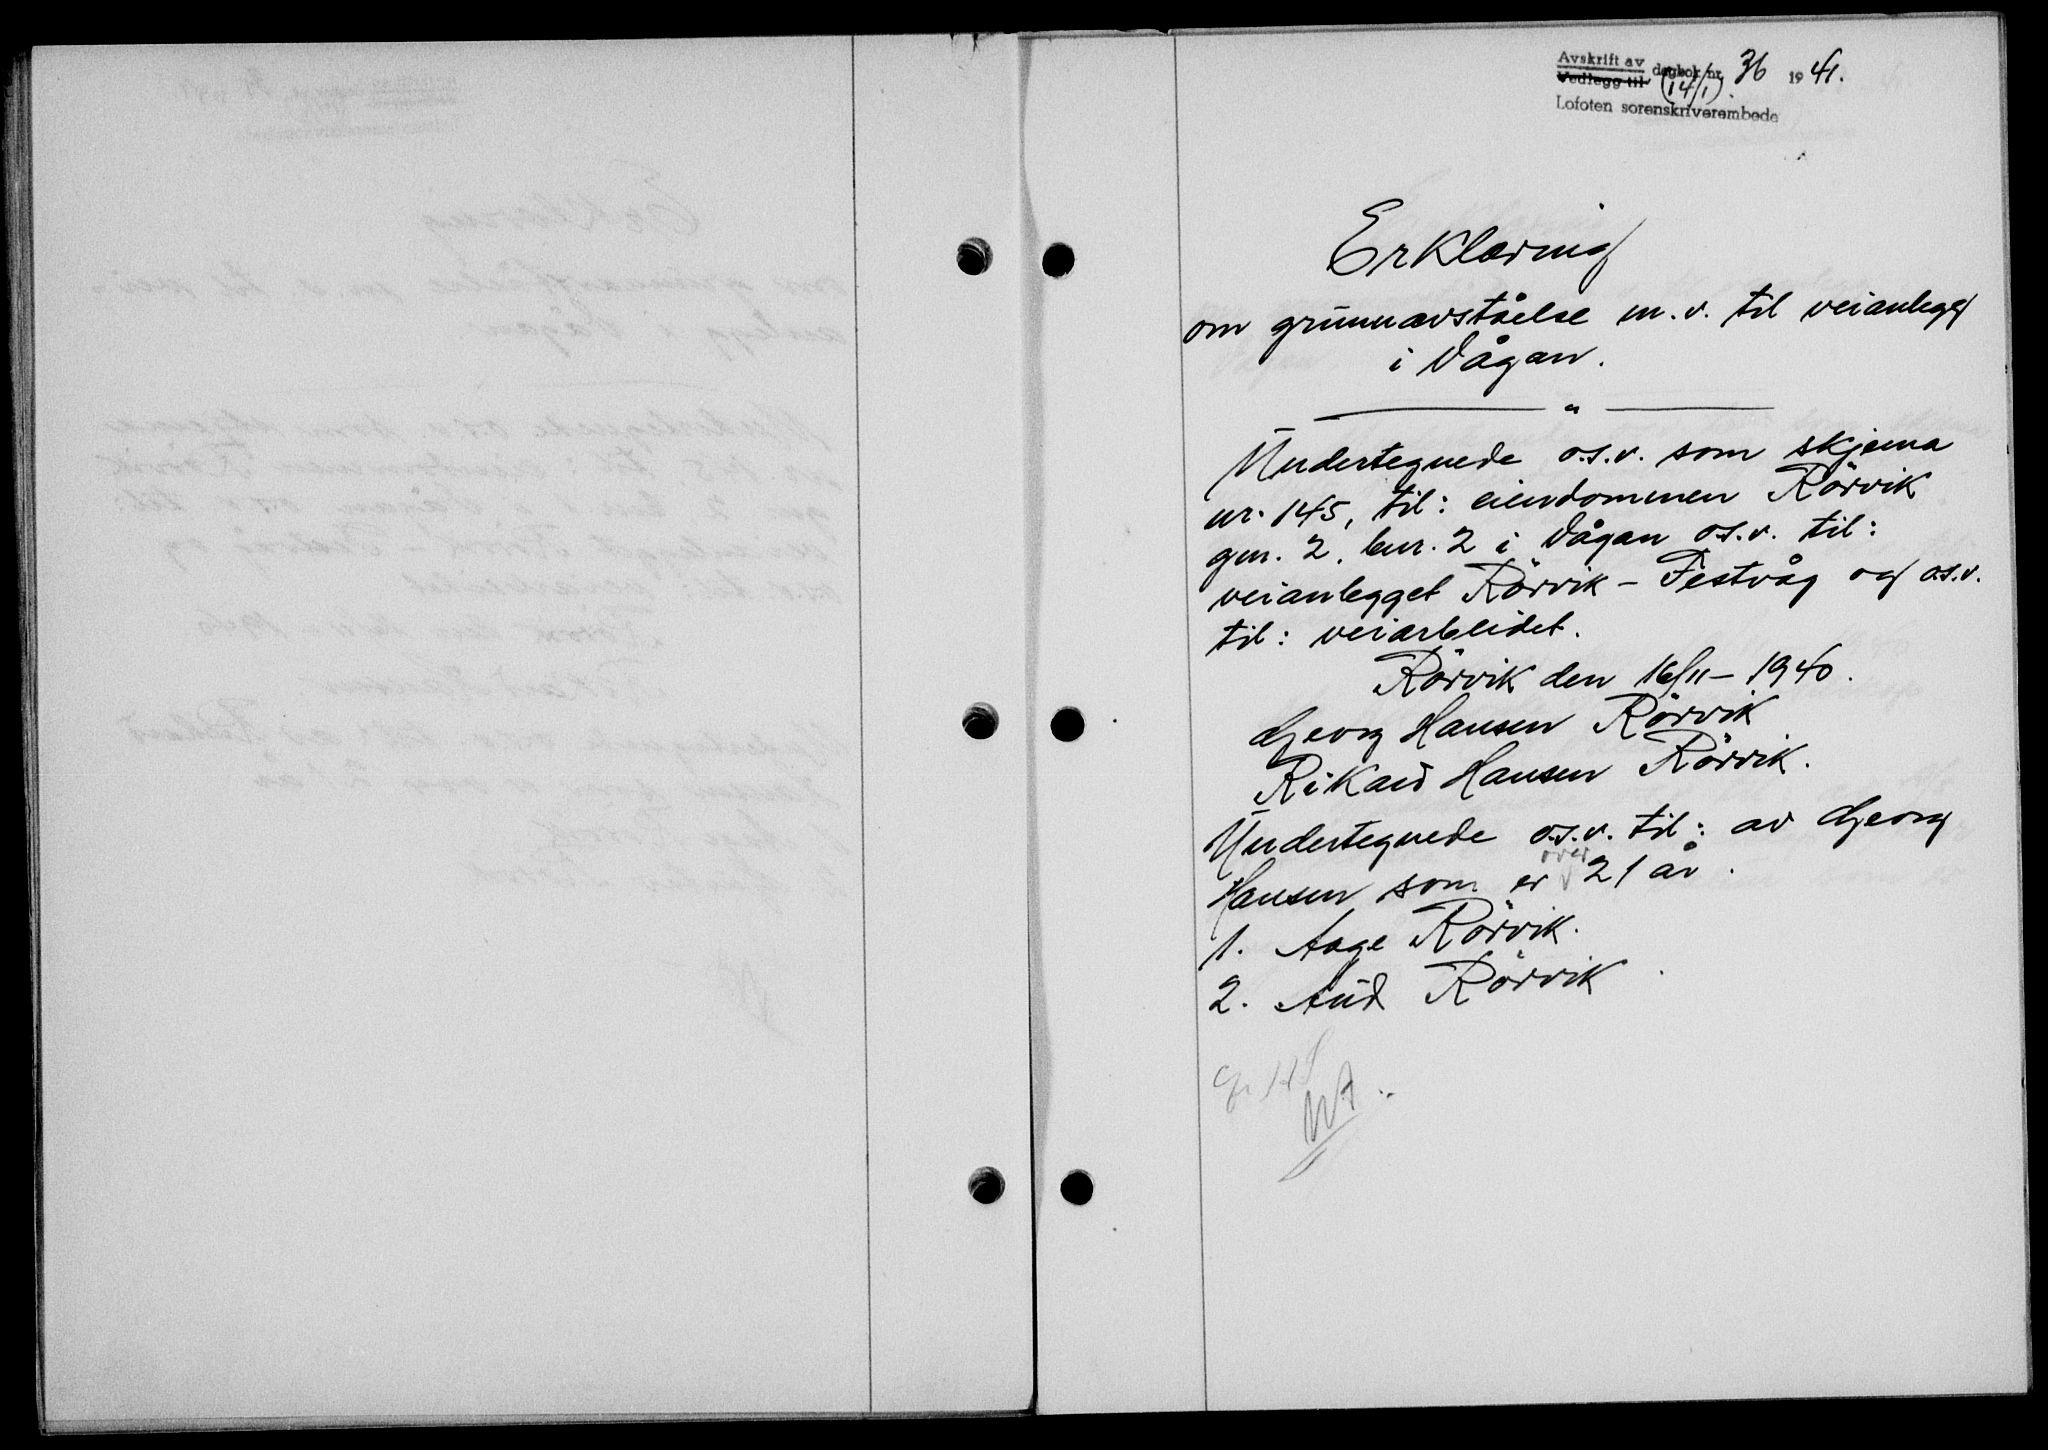 Avskrift av
Vedlegg til dagbok nr. 36 1941.
(14/1)
Lofoten sorenskriverembede
Erklæring
om grunnavståelse m.v. til veianlegg
i Vågan.
Undertegnede o.s.v. som skjema
nr. 145, til: eiendommen Rörvik
gnr. 2, bnr. 2 i Vågan o.s.v. til:
veianlegget Rörvik - Festvåg og o.s.v.
til: veiarbeidet.
Rörvik den 16/11 - 1940.
Georg Hansen Rörvik
Rikard Hansen Rörvik.
Undertegnede o.s.v. til: av Georg
Hansen som er over 21 år.
1. Aage Rörvik.
2. Aud Rörvik